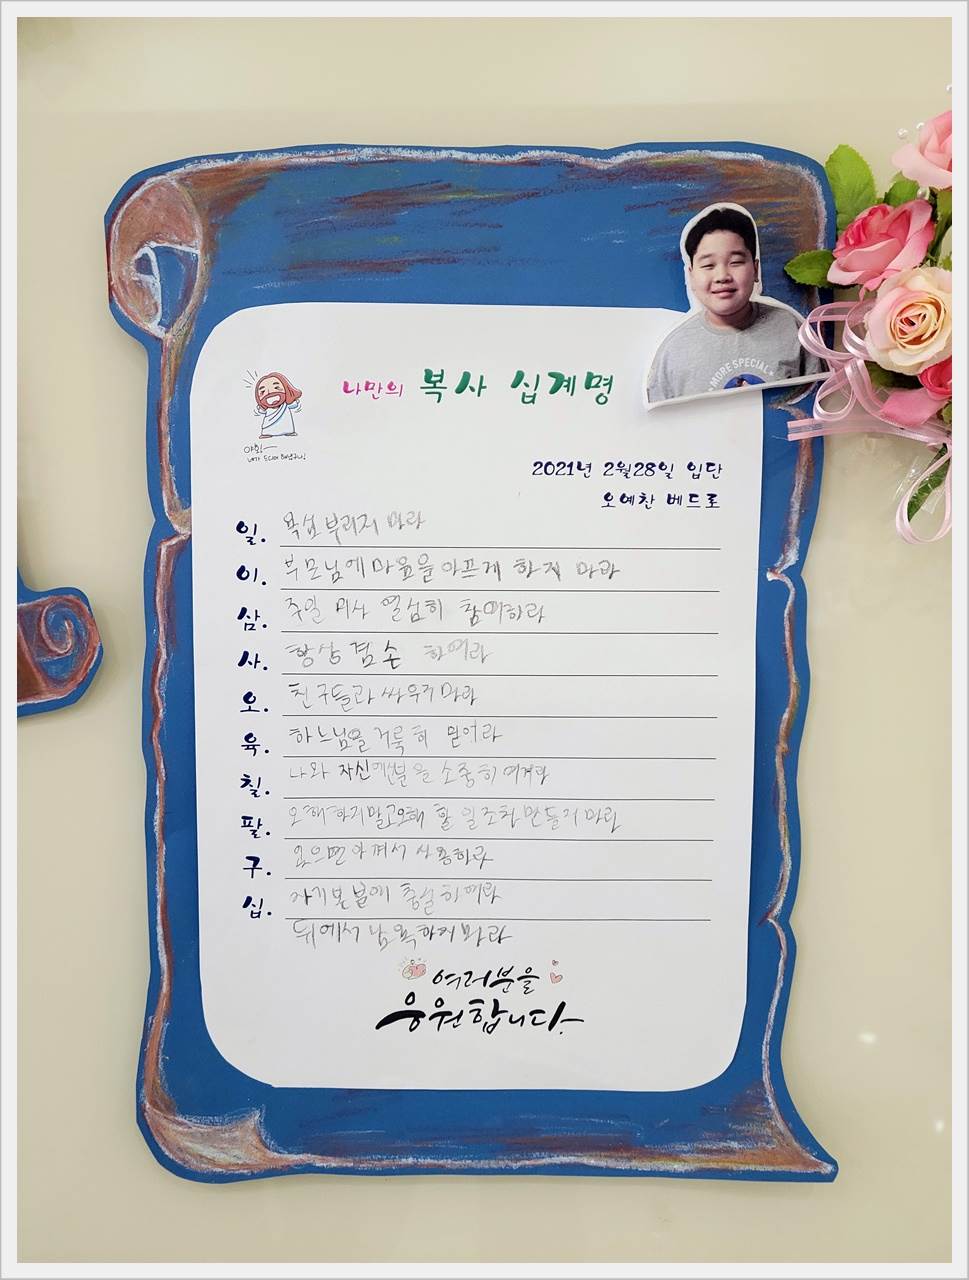 MORE SPECIAL
나만의 복사 십계명
야호!~
내가 드디어 해냈구나!
2021년 2월28일 입단
오예찬 베드로
일. 욕심 부리지 마라
이. 부모님에 마음을 아프게 하지 마라
삼. 주일 미사 열심히 참여하라
사. 항상 겸손 하여라
오. 친구들과 싸우지 마라
육. 하느님을 거룩히 믿어라
칠. 나와 자신 소중히 여겨라
팔. 오해하지말고오해 할 일조차만들지마라
구. 있으면아껴서 사용하라
십. 자기본분에 충실하여라
뒤에서 남 욕하지마라
여러분을
응원합니다.